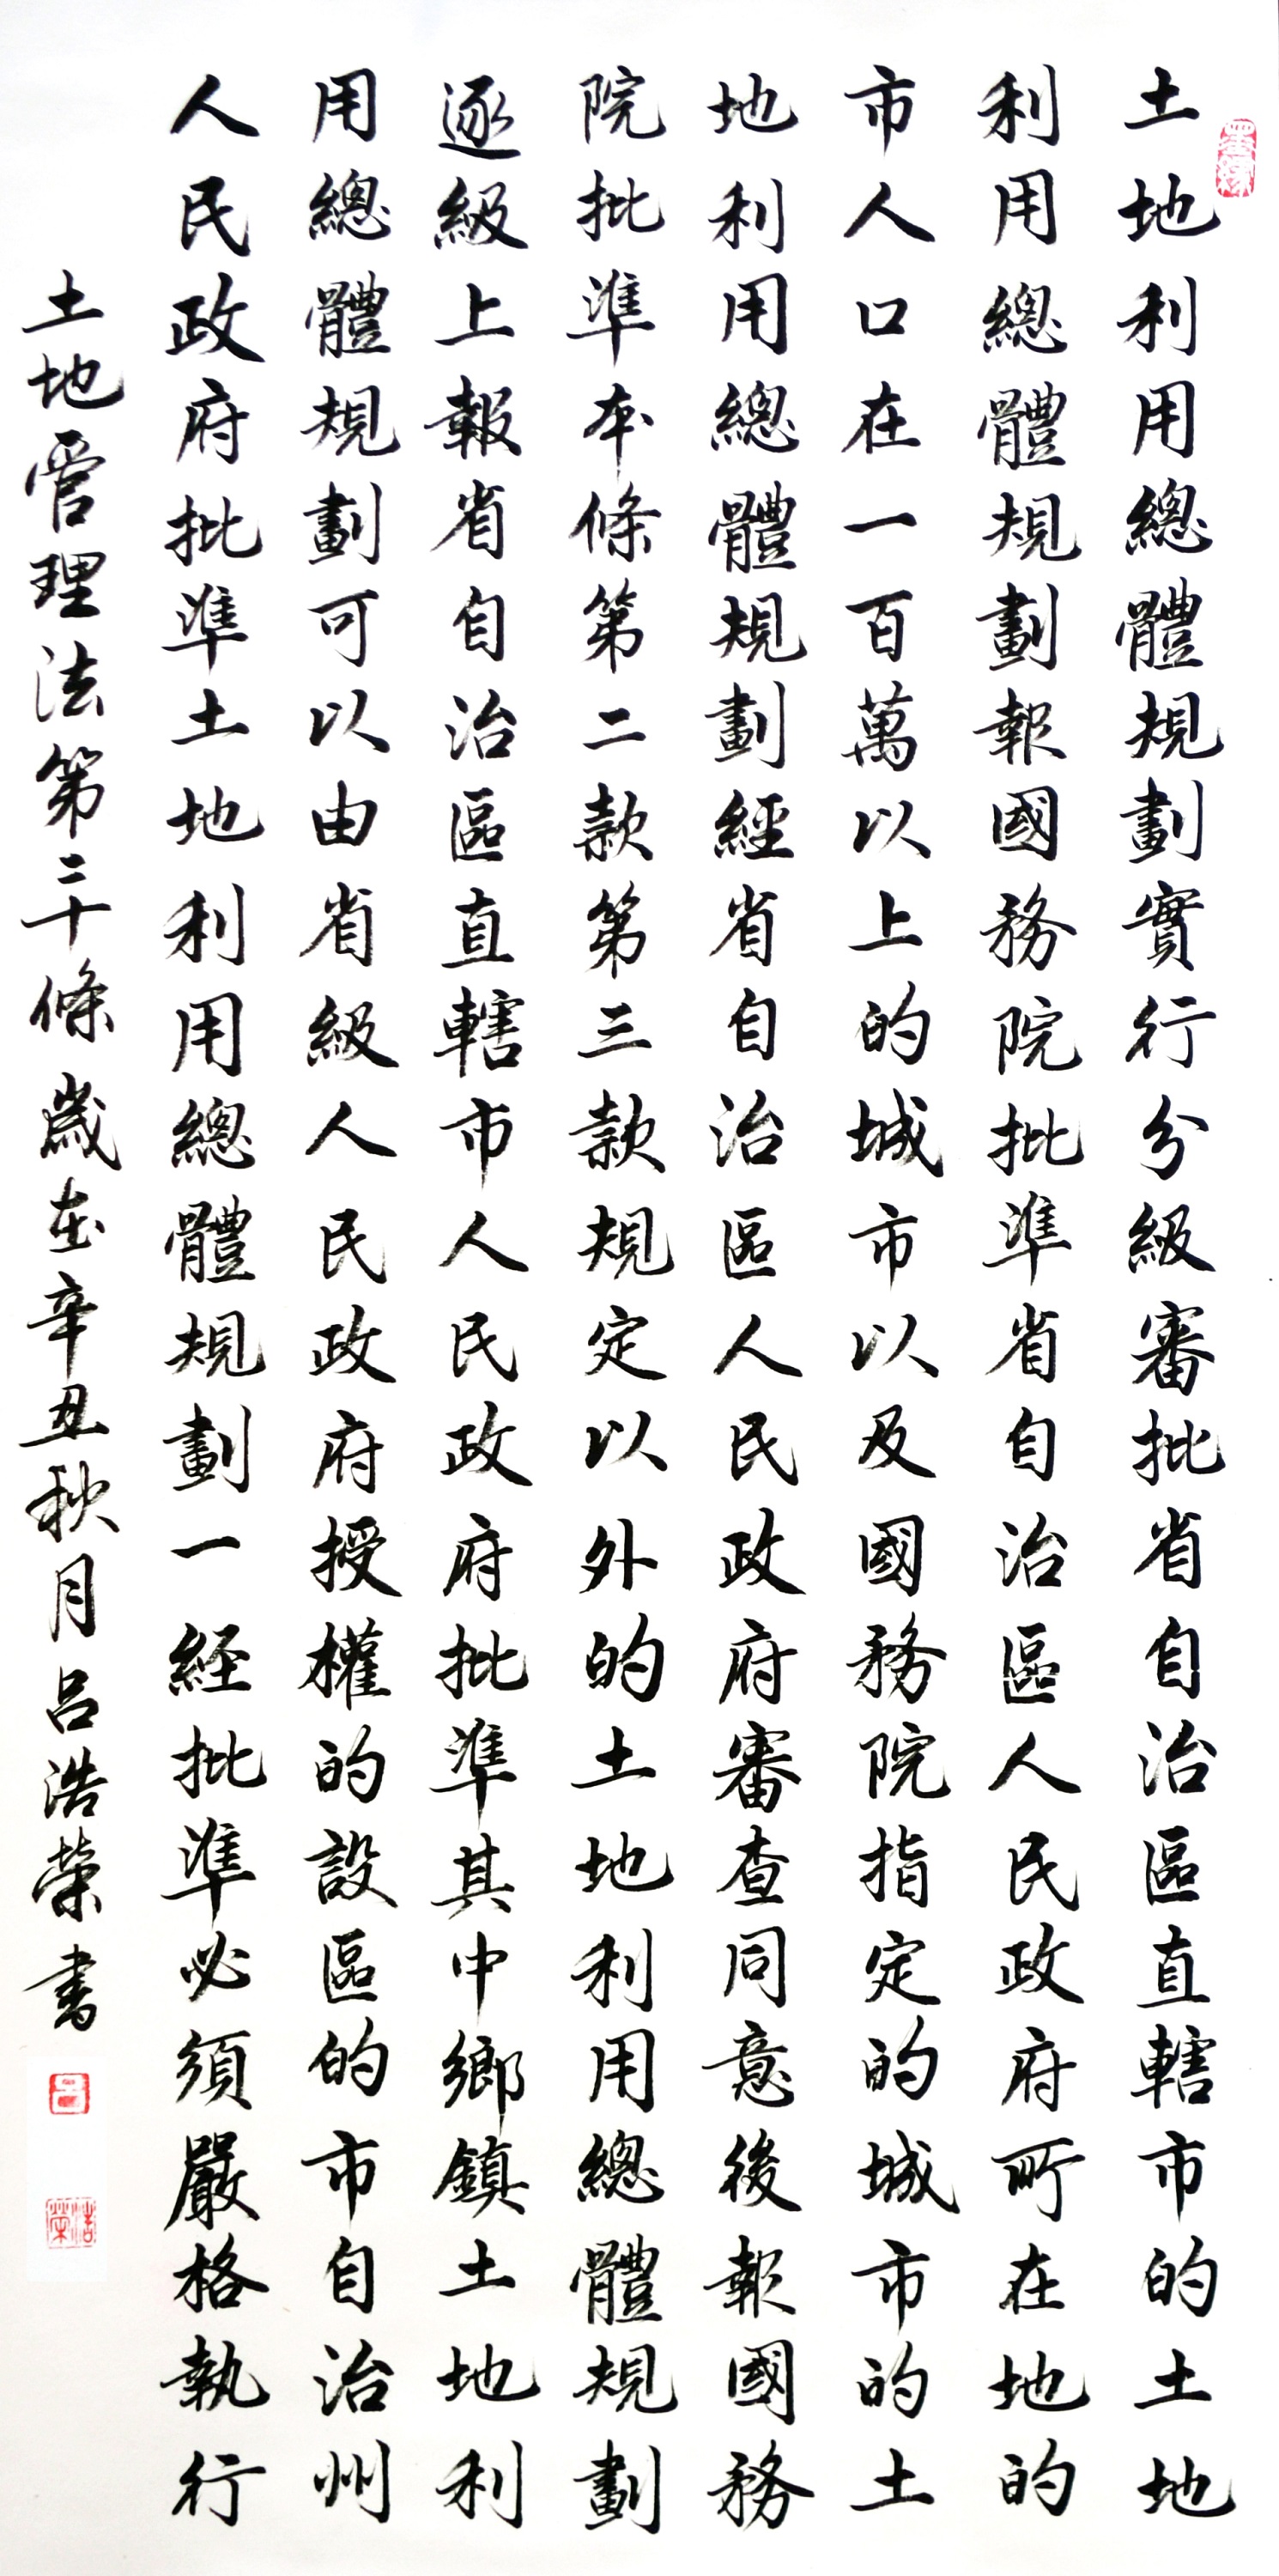 土地利用總體規劃實行分級審批省自治區直轄市的土地
利用總體規劃報國務院批準省自治區人民政府所在地的
市人口在一百萬以上的城市以及國務院指定的城市的土
地利用總體規劃經省自治區人民政府審查同意後報國務
院批準本條第二款第三款規定以外的土地利用總體規劃
逐級上報省自治區直轄市人民政府批準其中鄉鎮土地利
用總體規劃可以由省級人民政府授權的設區的市自治州
人民政府批準土地利用總體規劃一経批準必須嚴格執行
土地管理法第二十條歲在辛丑秋月呂浩榮書
呂
浩榮